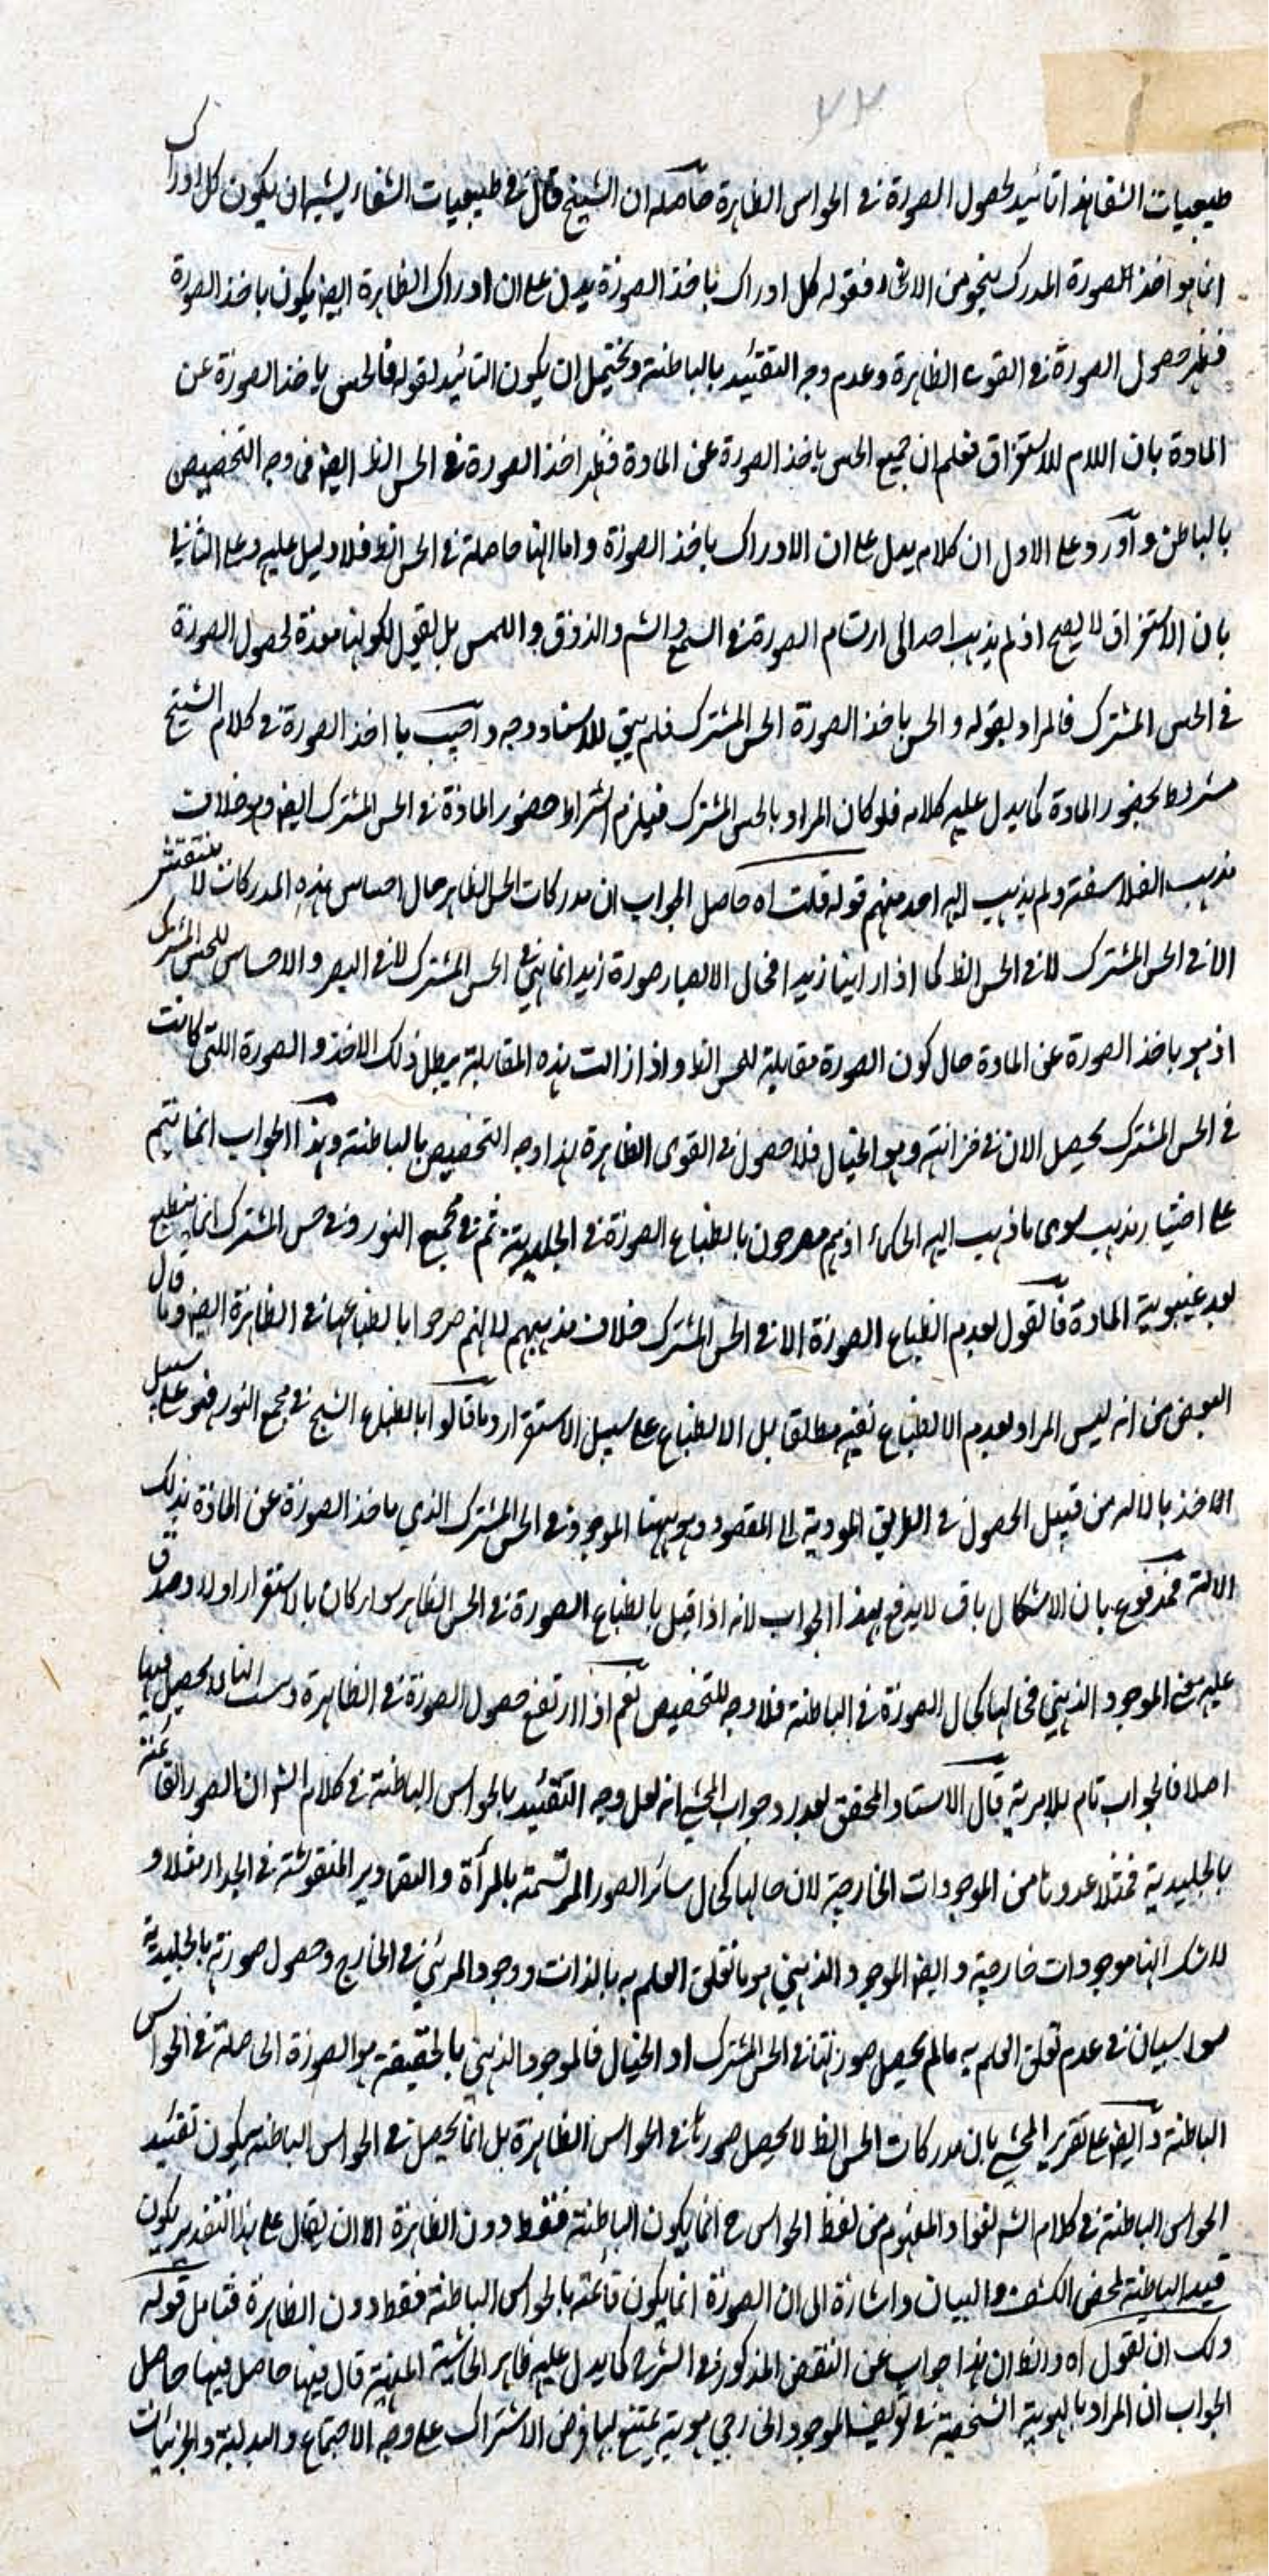 ٢٢
طبيعيات الشفا هذا تائيد لحصول الصورة فى الحواس الظاهرة حاصله ان الشيخ قال فى طبيعيات الشفاء يشبه ان يكون كل ادراك
انما هو اخذ الصورة المدرك بنحو من الانحاء فقوله كل ادراك باخذ الصورة يدل على ان ادراك الظاهرة ايضا يكون باخذ الصورة
فظهر حصول الصورة فى القوى الظاهرة وعدم وجه التقئيد بالباطنة ويحتمل ان يكون التائيد لقوله فالحس ياخذ الصورة عن
المادة بان اللام للاستغراق فعلم ان جميع الحس ياخذ الصورة عن المادة فظهر اخذ الصورة فى الحس الظ ايضا فما وجه التخصيص
بالباطن و آورد على الاول ان كلامه يدل على ان الادراك باخذ الصورة واما انها حاصلة فى الحس الظ فلا دليل عليه وعلى الثانى
بان الاستغراق لا يصح اذ لم يذهب احد الى ارتسام الصورة فى السمع والشم والذوق واللمس بل يقول لكونها معدة لحصول الصورة
فى الحس المشترك فالمراد بقوله والحس ياخذ الصورة الحس المشترك فلم يبق للاسناد وجه و آجيب با اخذ الصورة فى كلام الشيخ
مشروط بحضور المادة كما يدل عليه كلامه فلو كان المراد بالحس المشترك فيلزم اشتراط حضور المادة فى الحس المشترك ايضا وهو خلاف
مذهب الفلاسفة ولم يذهب اليه احد منهم قوله قلت اه حاصل الجواب ان مدركات الحس الظاهر حال احساس هذه المدركات لا ينتقش
الا فى الحس المشترك لا فى الحس الظ كما اذا راينا زيدا فحال الابصار صورة زيد انما هى فى الحس المشترك لا فى البصر والاحساس للحس المشترك
اذ هو ياخذ الصورة عن المادة حال كون الصورة مقابلة للحس الظ واذا زالت هذه المقابلة يبطل ذلك الاخذ والصورة اللتى كانت
فى الحس المشترك يحصل الان فى خزانته وهو الخيال فلا حصول فى القوى الظاهرة هذا وجه التخصيص بالباطنة وهذا الجواب انما يتم
على اختيار مذهب سوى ما ذهب اليه الحكماء اذ هم مصرحون بانطباع الصورة فى الجليدية ثم فى مجمع النور وفى حس المشترك انما ينطبع
بعد غيبوبة المادة فالقول بعدم انطباع الصورة الا فى الحس المشترك خلاف مذهبهم لانهم صرحوا بانطباعها فى الظاهرة ايضا وما قال
البعض من انه ليس المراد بعدم الانطباع نفيه مطلقا بل الانطباع على سبيل الاستقرار وما قالوا بانطباع الشبح فى مجمع النور فهو على سبيل
الاخذ بالاله من قبيل الحصول فى الطريق المودية الى المقصود وهو ههنا الموجود فى الحس المشترك الذي ياخذ الصورة عن المادة بذلك
الالة فمدفوع بان الاشكال باق لا يدفع بهذا الجواب لانه اذا قيل بانطباع الصورة فى الحس الظاهر سواء كان بالاستقرار اولا وصدق
عليه معنى الموجود الذهنى فحالها كحال الصورة فى الباطنة فلا وجه للتخصيص نعم اذا ارتفع حصول الصورة فى الظاهرة يحصل فيها
اصلا فالجواب تام بلا مرية قال الاستاد المحقق بعد رد جواب المحشى انه لعل وجه التقئيد بالحواس الباطنة فى كلام الش ان الصور القائمة
بالجليدية فمثلا عدوها من الموجودات الخارجية لان حالها كحال سائر الصور المرتسمة بالمرآة والتصاوير المنقوشة فى الجدار مثلا و
لا شك انها موجودات خارجية وايضا الموجود الذهنى هو ما تعلق العلم به بالذات ووجود المرئى فى الخارج وحصول صورته بالجليدية
سواسيان فى عدم تعلق العلم به مالم يحصل صورتها فى الحس المشترك او الخيال فالموجود الذهنى بالحقيقة هو الصورة الحاصلة فى الحواس
الباطنة و ايضا على تقرير المحشى بان مدركات الحس الظ لا يحصل صورتها فى الحواس الظاهرة بل انما يحصل فى الحواس الباطنة يكون تقئيد
الحواس الباطنة فى كلام الش لغوا والمفهوم من لفظ الحواس ح انما يكون الباطنة فقط دون الظاهرة الا ان يقال على هذا التقدير يكون
قيد الباطنة لمحض الكشف والبيان واشارة الى ان الصورة انما يكون قائمة بالحواس الباطنة فقط دون الظاهرة فتامل قوله
ولك ان تقول اه والظ ان هذا جواب عن النقض المذكور فى الشرح كما يدل عليه ظاهر الحاشية المنهية قال فيها حاصل
الجواب ان المراد بالهوية الشخصية فى تعريف الموجود الخارجى هوية يمتنع لها فرض الاشتراك على وجه الاجتماع والبدلية والجزئيات